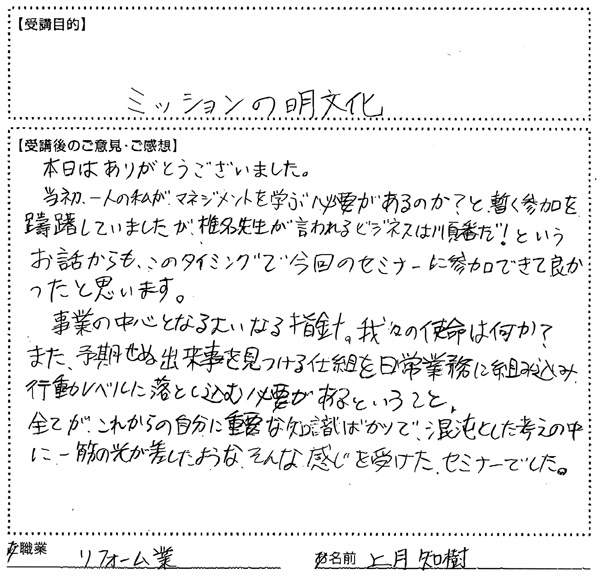 【受講目的】
ミッションの明文化
【受講後のご意見・ご感想】
本日はありがとうございました。
当初、一人の私がマネジメントを学ぶ必要があるのか？と、暫く参加を
躊躇していましたが、椎名先生が言われるビジネスは順番だ！という
お話からも、このタイミングで今回のセミナーに参加できて良か
ったと思います。
事業の中心となる大いなる指針。我々の使命は何か？
また、予期せぬ出来事を見つける仕組を日常業務に組み込み
行動レベルに落とし込む必要があるということ。
全てが、これからの自分に重要な知識ばかりで、混沌とした考えの中
に、一筋の光が差したような、そんな感じを受けた、セミナーでした。
職業 リフォーム業 お名前 上月 知樹